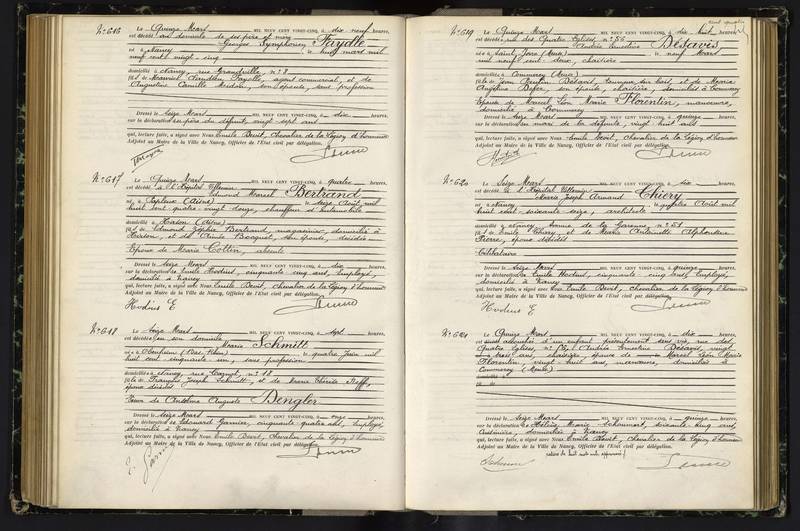 N° 616 Le Quinze Mars MIL NEUF CENT VINGT-CINQ, à dix neuf heures,
est décédé au domicile de ses père et mère
Georges Symphorien Fayolle
né à Nancy le huit mars mil
neuf cent vingt-cinq
domicilié à Nancy, rue Grandville, n° 8
fils de Fayolle, agent commercial, et de
Augustine Camille son épouse, sans profession
Dressé le Seize Mars MIL NEUF CENT VINGT-CINQ, à dix heures,
sur la déclaration du père du défunt, vingt sept ans
qui, lecture faite, a signé avec Nous Emile Bevit, Chevalier de la Légion d'honneur
Adjoint au Maire de la Ville de Nancy, Officier de l'Etat civil par délégation.
N° 617 Le Quinze Mars MIL NEUF CENT VINGT-CINQ, à quatre heures,
est décédé à l'Hôpital Villemin
Edmond Marcel Bertrand
né à Papleux (Aisne) le seize Août mil
huit cent quatre-vingt douze, chauffeur d'automobile
domicilié à Hirson (Aisne)
fils de Edmond Sophie Bertrand, magasinier, domicilié à
Hirson, et de Aimée Bocquet, son épouse, décédée
Epoux de Marie Cottin, absente
Dressé le Seize Mars MIL NEUF CENT VINGT-CINQ, à dix heures,
sur la déclaration de Emile Hodius, cinquante cinq ans, Employé,
domicilié à Nancy
qui, lecture faite, a signé avec Nous Emile Bevit, Chevalier de la Légion d'honneur
Adjoint au Maire de la Ville de Nancy, Officier de l'Etat civil par délégation.
Hodius E
N° 618 Le Seize Mars MIL NEUF CENT VINGT-CINQ, à sept heures,
est décédée en son domicile
Marie Schmitt
née à Obenheim (Bas Rhin) le quatre Juin mil
huit cent cinquante un, sans profession
domiciliée à Nancy, rue n° 18
fille de François Joseph Schmitt, et de Marie Thérèse Neff,
époux décédés
Veuve de Antoine Auguste Dengler
Dressé le Seize Mars MIL NEUF CENT VINGT-CINQ, à onze heures,
sur la déclaration de Edouard Garnier, cinquante quatre ans, Employé,
domicilié à Nancy
qui, lecture faite, a signé avec Nous Emile Bevit, Chevalier de la Légion d'honneur
Adjoint au Maire de la Ville de Nancy, Officier de l'Etat civil par délégation.
N° 619 Le Quinze Mars MIL NEUF CENT VINGT-CINQ, à dix huit heures,
est décédée rue des Quatre Eglises, n° 56
Andrée Ernestine Bésavis
née à Saint (Meuse) le neuf Mars
mil neuf cent deux, chaisière
domiciliée à Commercy (Meuse)
fille de Jean Bésavis, et de Marie
Angeline son épouse, chaisière, domiciliés à Commercy
Epouse de Marcel Léon Marie Florentin, manœuvre,
domicilié à Commercy
Dressé le Seize Mars MIL NEUF CENT VINGT-CINQ, à quinze heures,
sur la déclaration du mari de la défunte, vingt huit ans
qui, lecture faite, a signé avec Nous Emile Bevit, Chevalier de la Légion d'honneur
Adjoint au Maire de la Ville de Nancy, Officier de l'Etat civil par délégation.
N° 620 Le Seize Mars MIL NEUF CENT VINGT-CINQ, à dix heures,
est décédé à l'Hôpital Villemin
Marie Joseph Armand Thiery
né à Nancy le quatre Août mil
huit cent soixante seize, architecte
domicilié à Nancy, Avenue de la Garenne, n° 51
fils de Emile Thiery, et de Marie Antoinette Alphonsine
Pierre, époux décédés
Célibataire
Dressé le Seize Mars MIL NEUF CENT VINGT-CINQ, à quinze heures,
sur la déclaration de Emile Hodius, cinquante cinq ans, Employé,
domicilié à Nancy
qui, lecture faite, a signé avec Nous Emile Bevit, Chevalier de la Légion d'honneur
Adjoint au Maire de la Ville de Nancy, Officier de l'Etat civil par délégation.
Hodius E
N° 621 Le Quinze Mars MIL NEUF CENT VINGT-CINQ, à dix heures,
est accouchée d'un enfant présentement sans vie, rue des
Quatre Eglises, n° 56, Andrée Ernestine Bésavis, vingt
trois ans, chaisière, épouse de Marcel Léon Marie
Florentin, vingt huit ans, manœuvre, domiciliés à
Commercy (Meuse)
Dressé le Seize Mars MIL NEUF CENT VINGT-CINQ, à quinze heures,
sur la déclaration de Hélène Marie Schoumert, soixante cinq ans,
domiciliée à Nancy
qui, lecture faite, a signé avec Nous Emile Bevit, Chevalier de la Légion d'honneur
Adjoint au Maire de la Ville de Nancy, Officier de l'Etat civil par délégation.